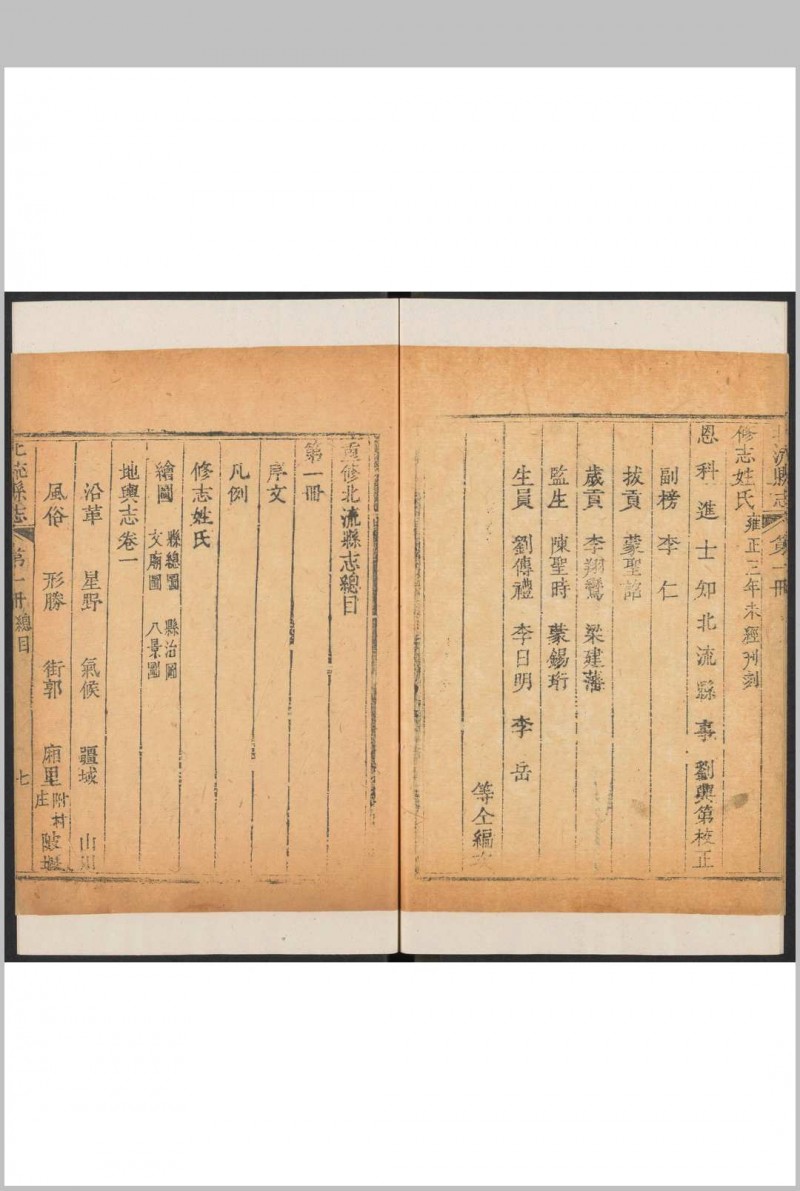 北流縣志 第一冊
修志姓氏 雍正三年未經刊刻
恩科進士知北流縣事劉興第校正
副榜 李仁
拔貢 蒙聖詔
歲貢 李翔鷟 梁建藩
監生 陳聖時 蒙錫珩
生員 劉傳禮 李日明 李岳
等仝編次
重修北流縣志總目
第一冊
序文
凡例
修志姓氏
繪圖 縣總圖 縣治圖 文廟圖 八景圖
地輿志卷一
沿革 星野 氣候 疆域 山川
風俗 形勝 街郭 廂里 附村庄 陂
北流縣志 第一冊總目 七